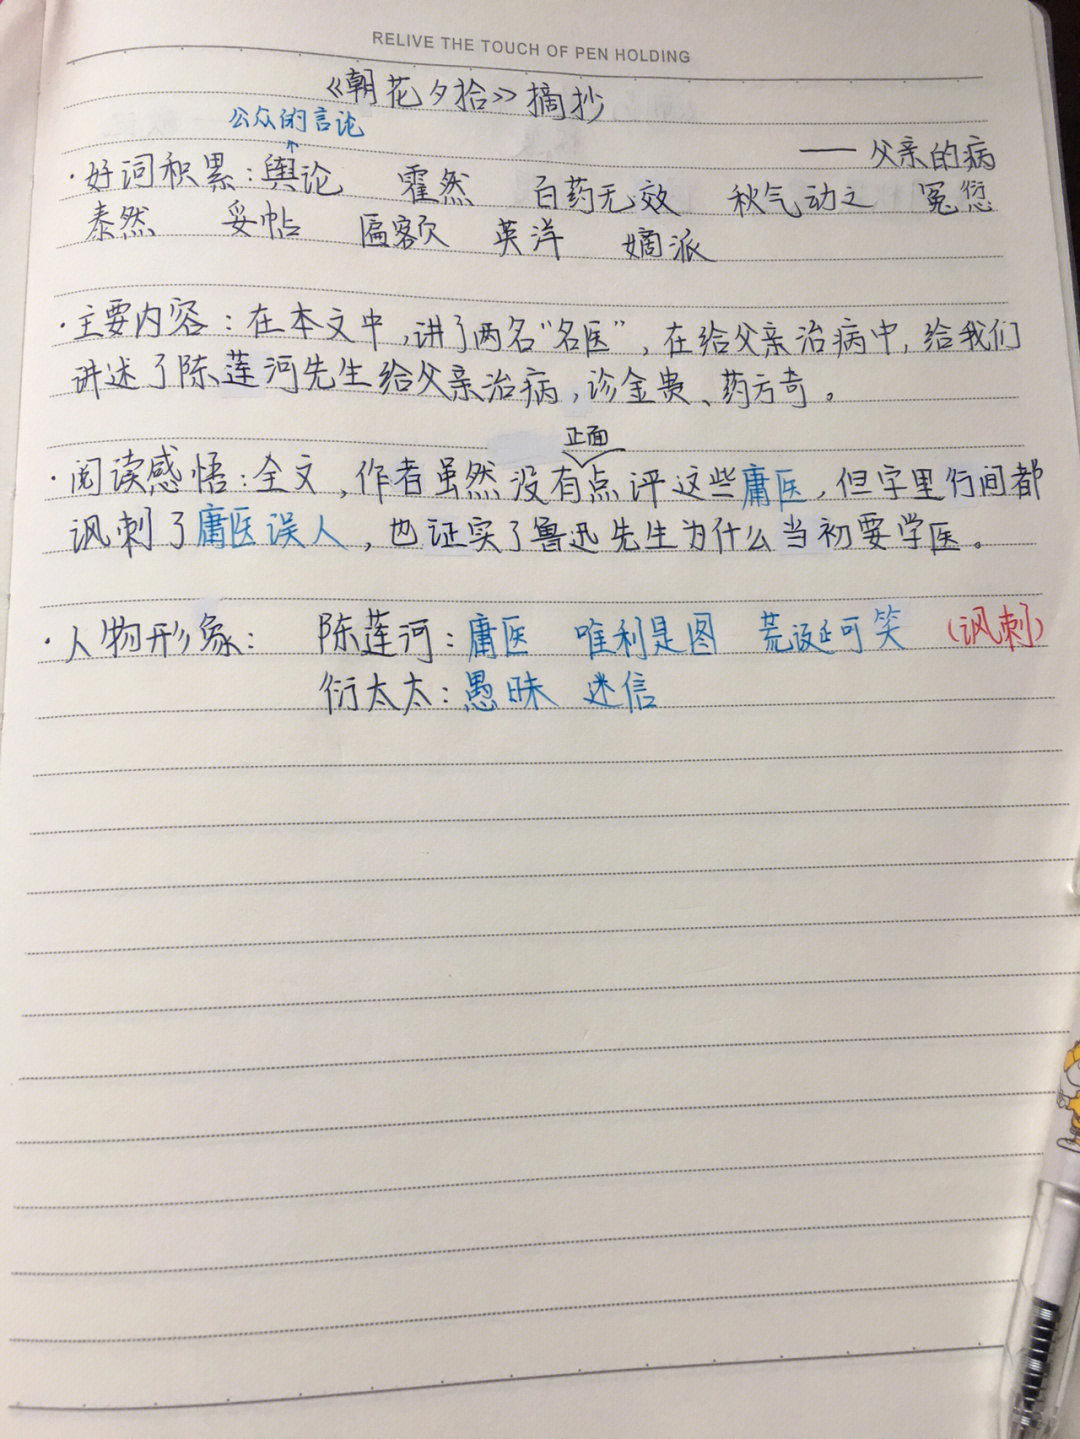 RELIVE THE TOUCH OF PEN HOLDING
《朝花夕拾》摘抄
公众的言论
——父亲的病
·好词积累:舆论 霍然 百药无效 秋气动之 冤愆
泰然 妥帖 匾额 英洋 嫡派
·主要内容:在本文中,讲了两名“名医”,在给父亲治病中,给我们
讲述了陈莲河先生给父亲治病,诊金贵、药方奇。
正面
·阅读感悟:全文,作者虽然没有点评这些庸医,但字里行间都
讽刺了庸医误人,也证实了鲁迅先生为什么当初要学医。
·人物形象: 陈莲河:庸医 唯利是图 荒诞可笑 (讽刺)
衍太太:愚昧 迷信